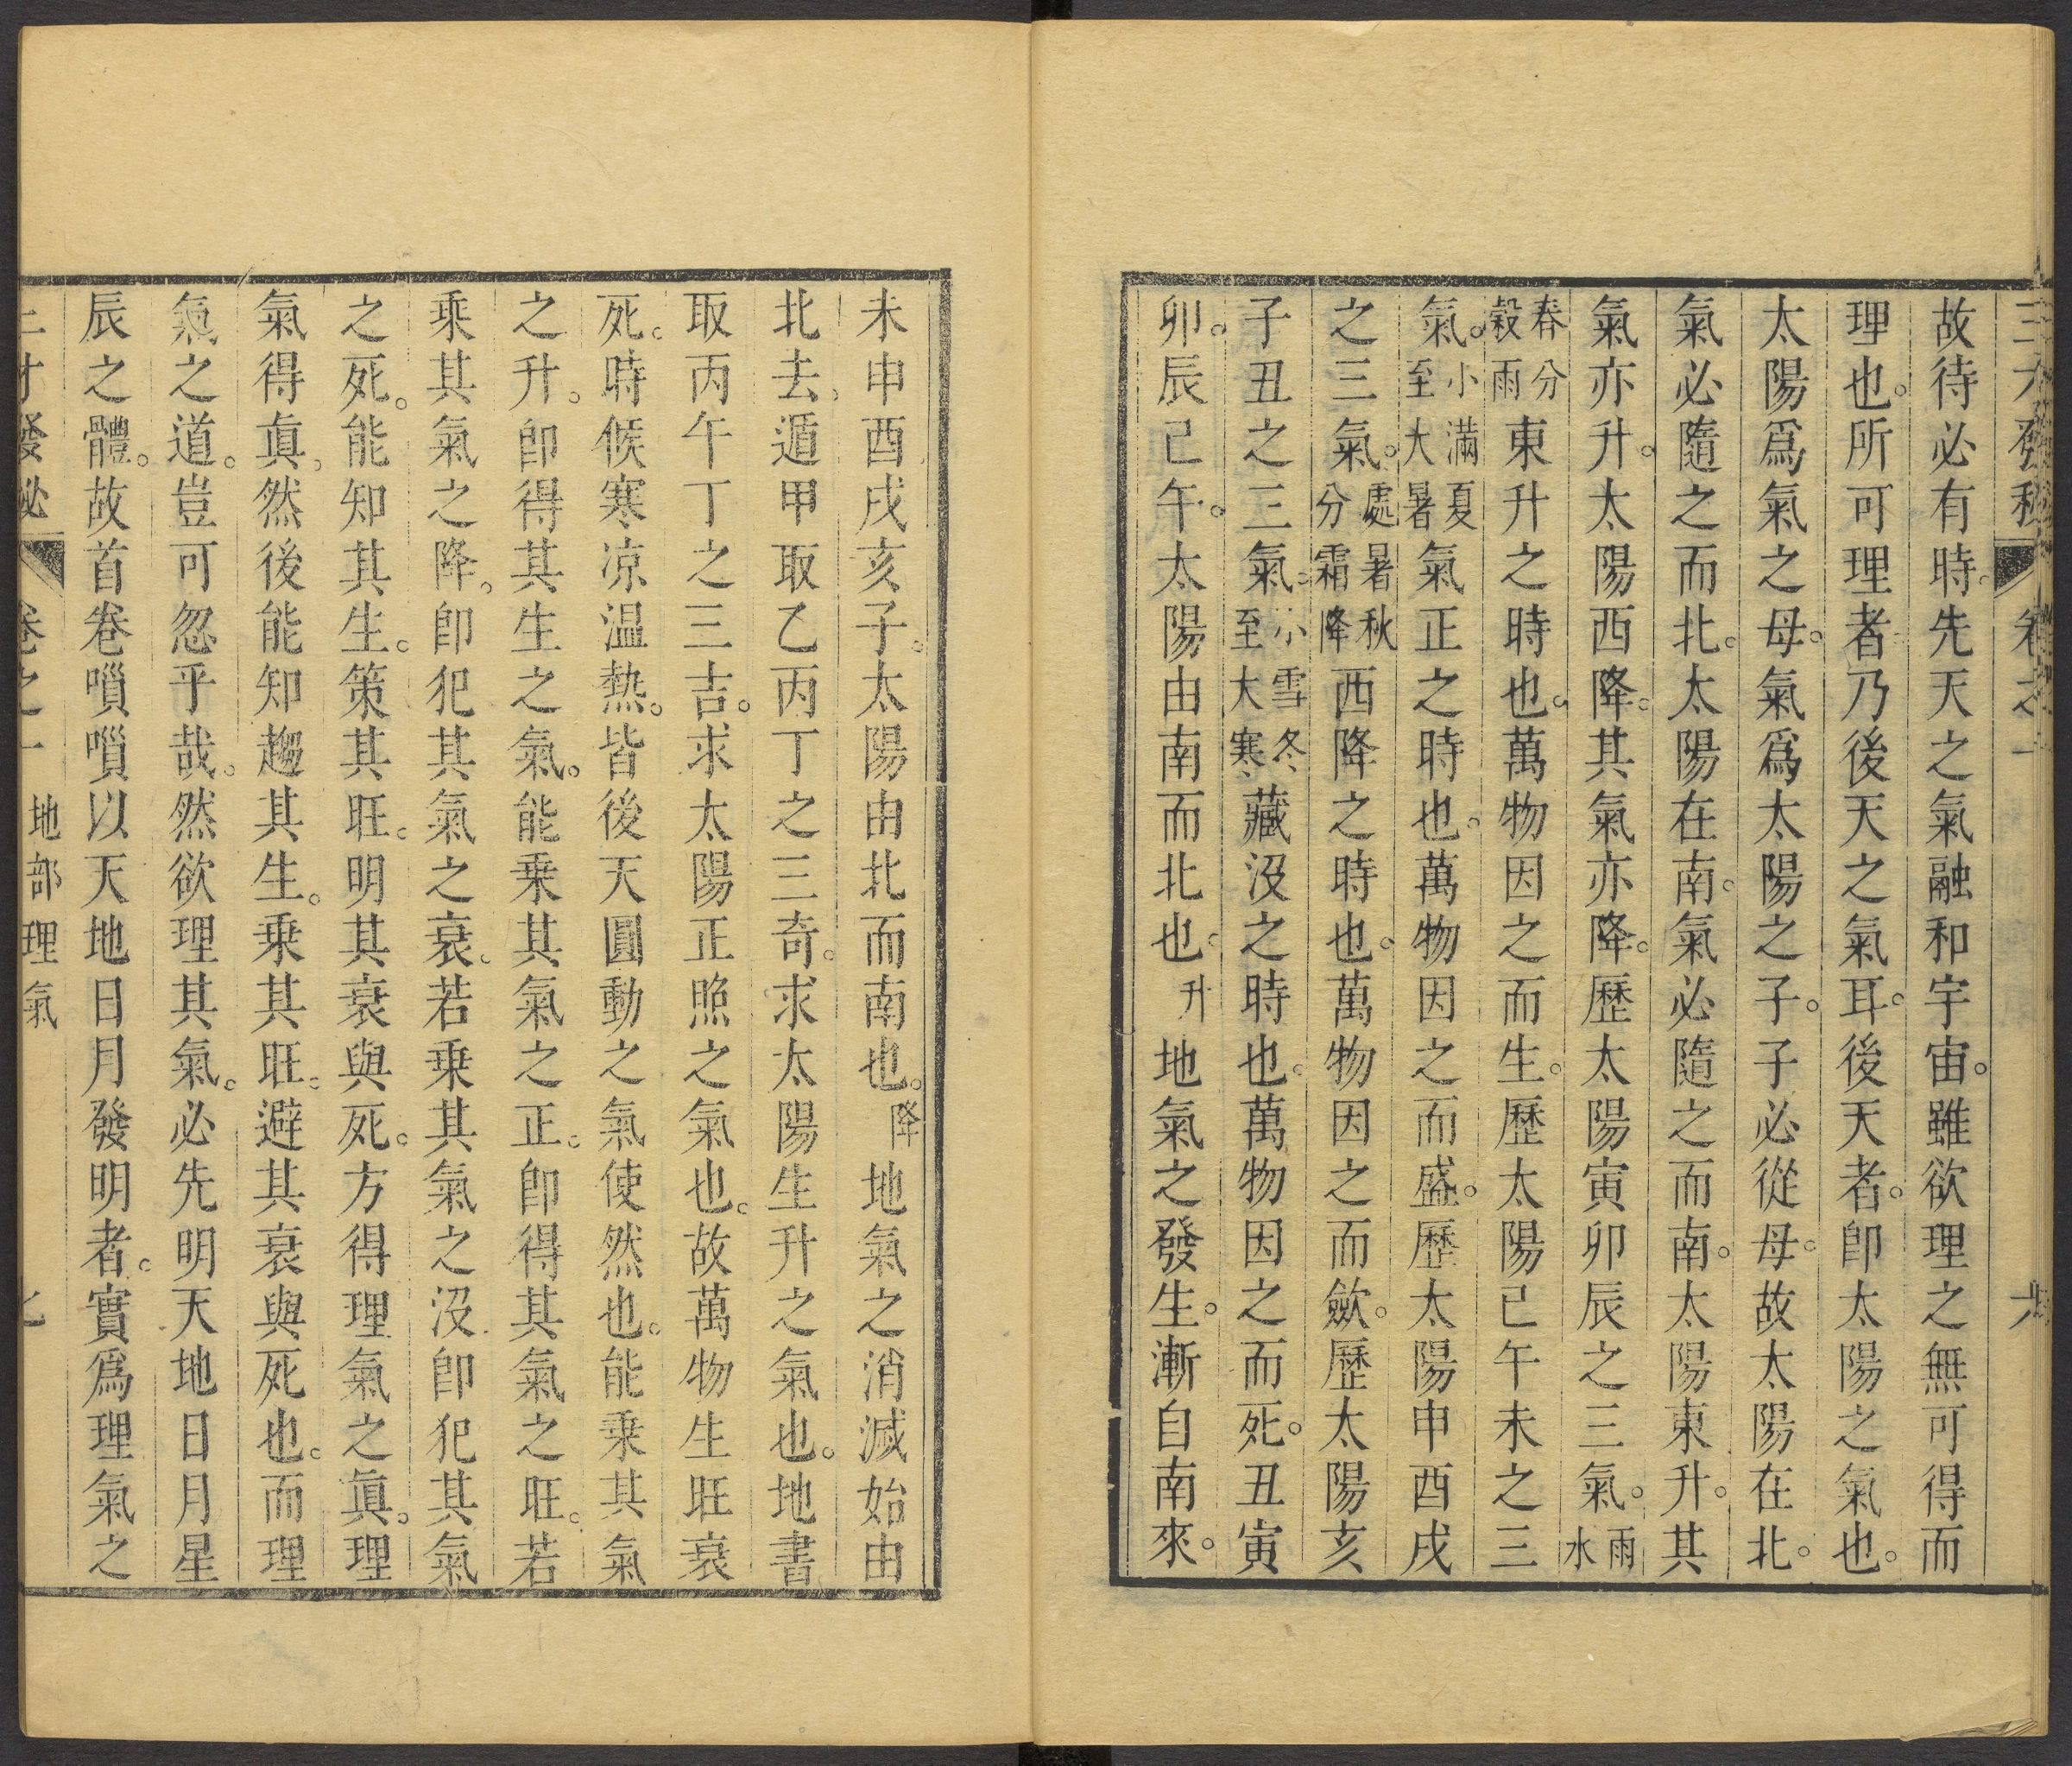 三才發秘 卷之一 六
故待必有時。先天之氣融和宇宙。雖欲理之無可得而
理也。所可理者。乃後天之氣耳。後天者。卽太陽之氣也。
太陽爲氣之母。氣爲太陽之子。子必從母。故太陽在北。
氣必隨之而北。太陽在南。氣必隨之而南。太陽東升。其
氣亦升。太陽西降。其氣亦降。歷太陽寅卯辰之三氣。雨水
春分穀雨東升之時也。萬物因之而生。歷太陽巳午未之三
氣。小滿夏至大暑氣正之時也。萬物因之而盛。歷太陽申酉戌
之三氣。處暑秋分霜降西降之時也。萬物因之而歛。歷太陽亥
子丑之三氣。小雪冬至大寒藏沒之時也。萬物因之而死。丑寅
卯。辰巳午。太陽由南而北也。升地氣之發生。漸自南來。
未申酉戌亥子。太陽由北而南也。降地氣之消滅始由
北去。遁甲取乙丙丁之三奇。求太陽生升之氣也。地書
取丙午丁之三吉。求太陽正照之氣也。故萬物生旺衰
死。時候寒凉温熱。皆後天圓動之氣使然也。能乗其氣
之升。卽得其生之氣。能乗其氣之正。卽得其氣之旺。若
乗其氣之降。卽犯其氣之衰。若乗其氣之沒。卽犯其氣
之死。能知其生。策其旺。明其衰與死。方得理氣之眞。理
氣得眞。然後能知趨其生。乗其旺。避其衰與死也。而理
氣之道。豈可忽乎哉。然欲理其氣。必先明天地日月星
辰之體。故首卷嗩嗩以天地日月發明者。實爲理氣之
三才發秘 卷之一 地部理氣 七